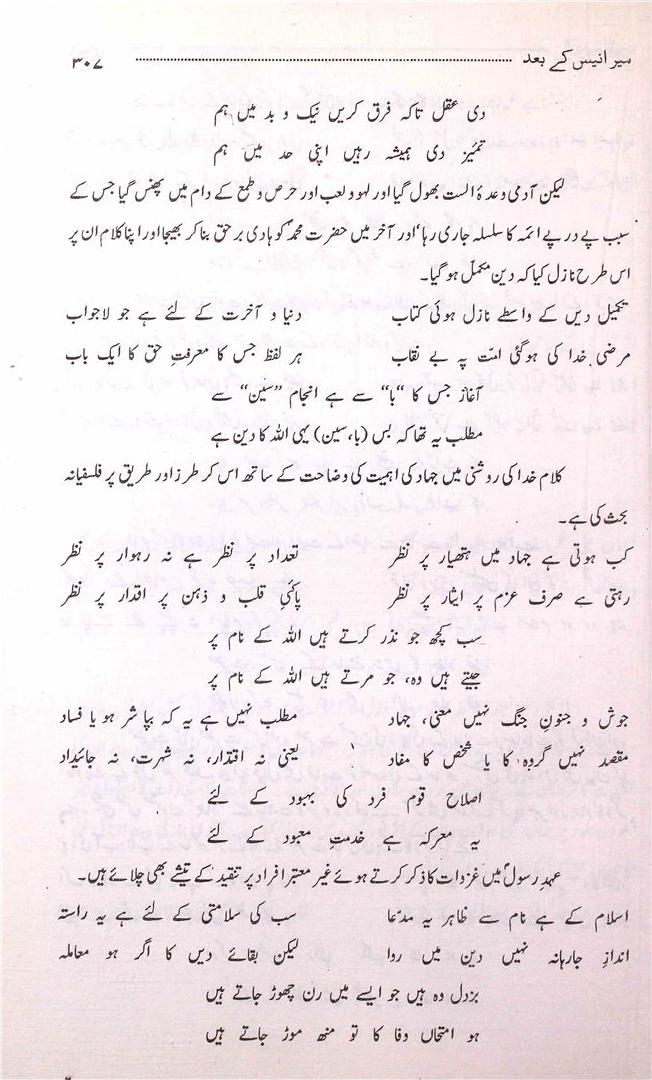 میر انیس کے بعد ۳۰۷
دی عقل تاکہ فرق کریں نیک و بد میں ہم
تمیز دی ہمیشہ رہیں اپنی حد میں ہم
لیکن آدمی وعدۂ الست بھول گیا اور لہو و لعب اور حرص و طمع کے دام میں پھنس گیا جس کے
سبب پے در پے ائمہ کا سلسلہ جاری رہا، اور آخر میں حضرت محمدؐ کو ہادی برحق بنا کر بھیجا اور اپنا کلام ان پر
اس طرح نازل کیا کہ دین مکمل ہو گیا۔
تکمیل دیں کے واسطے نازل ہوئی کتاب دنیا و آخرت کے لئے ہے جو لاجواب
مرضی خدا کی ہوگئی امت پہ بے نقاب ہر لفظ جس کا معرفتِ حق کا ایک باب
آغاز جس کا “با” سے ہے انجام “سین” سے
مطلب یہ تھا کہ بس (با، سین) یہی اللہ کا دین ہے
کلام خدا کی روشنی میں جہاد کی اہمیت کی وضاحت کے ساتھ اس کر طرز اور طریق پر فلسفیانہ
بحث کی ہے۔
کب ہوتی ہے جہاد میں ہتھیار پر نظر تعداد پر نظر ہے نہ رہوار پر نظر
رہتی ہے صرف عزم پر ایثار پر نظر پاکیِ قلب و ذہن پر اقدار پر نظر
سب کچھ جو نذر کرتے ہیں اللہ کے نام پر
جیتے ہیں وہ، جو مرتے ہیں اللہ کے نام پر
جوش و جنونِ جنگ نہیں معنی، جہاد مطلب نہیں ہے یہ کہ بپا شر ہو یا فساد
مقصد نہیں گروہ کا یا شخص کا مفاد یعنی نہ اقتدار، نہ شہرت، نہ جائیداد
اصلاح قوم فرد کی بہبود کے لئے
یہ معرکہ ہے خدمتِ معبود کے لئے
عہدِ رسولؐ میں غزوات کا ذکر کرتے ہوئے غیر معتبر افراد پر تنقید کے تیشے بھی چلائے ہیں۔
اسلام کے ہے نام سے ظاہر یہ مدعا سب کی سلامتی کے لئے ہے یہ راستہ
اندازِ جارحانہ نہیں دین میں روا لیکن بقائے دیں کا اگر ہو معاملہ
بزدل وہ ہیں جو ایسے میں رن چھوڑ جاتے ہیں
ہو امتحاں وفا کا تو منھ موڑ جاتے ہیں